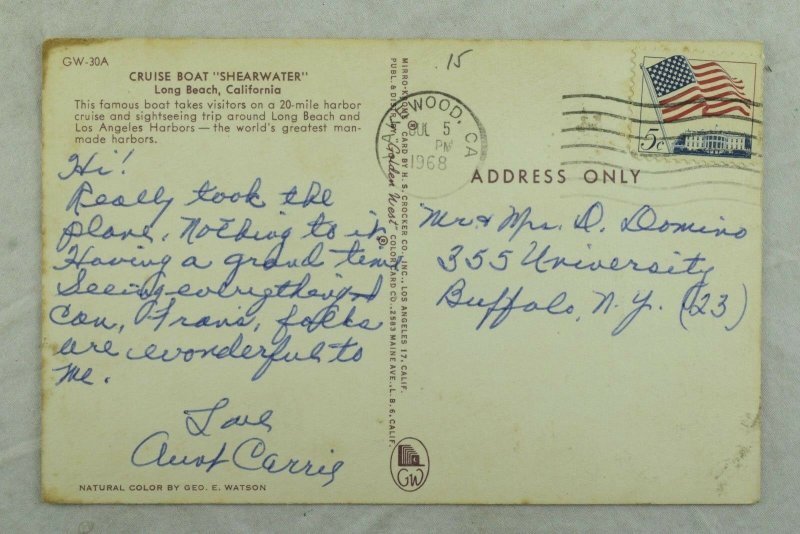 GW-30A
CRUISE BOAT "SHEARWATER"
Long Beach, California
This famous boat takes visitors on a 20-mile harbor
cruise and sightseeing trip around Long Beach and
Los Angeles Harbors — the world's greatest man-
made harbors.
Hi!
Really took the
plane, Nothing to it.
Having a grand time
Seeing everything I
can, Frans, folks
are wonderful to
me.
Love
Aunt Carrie
NATURAL COLOR BY GEO. E. WATSON
MIRRO-KROME® CARD BY H. S. CROCKER CO., INC., LOS ANGELES 17, CALIF.
PUBL. & DISTR. BY "Golden West"® COLOR CARD CO., 2583 MAINE AVE., L. B. 6, CALIF.
GW
15
WOOD, CA
JUL 5
PM
1968
5c
ADDRESS ONLY
Mr & Mrs. D. Domino
355 University
Buffalo, N.Y. (23)